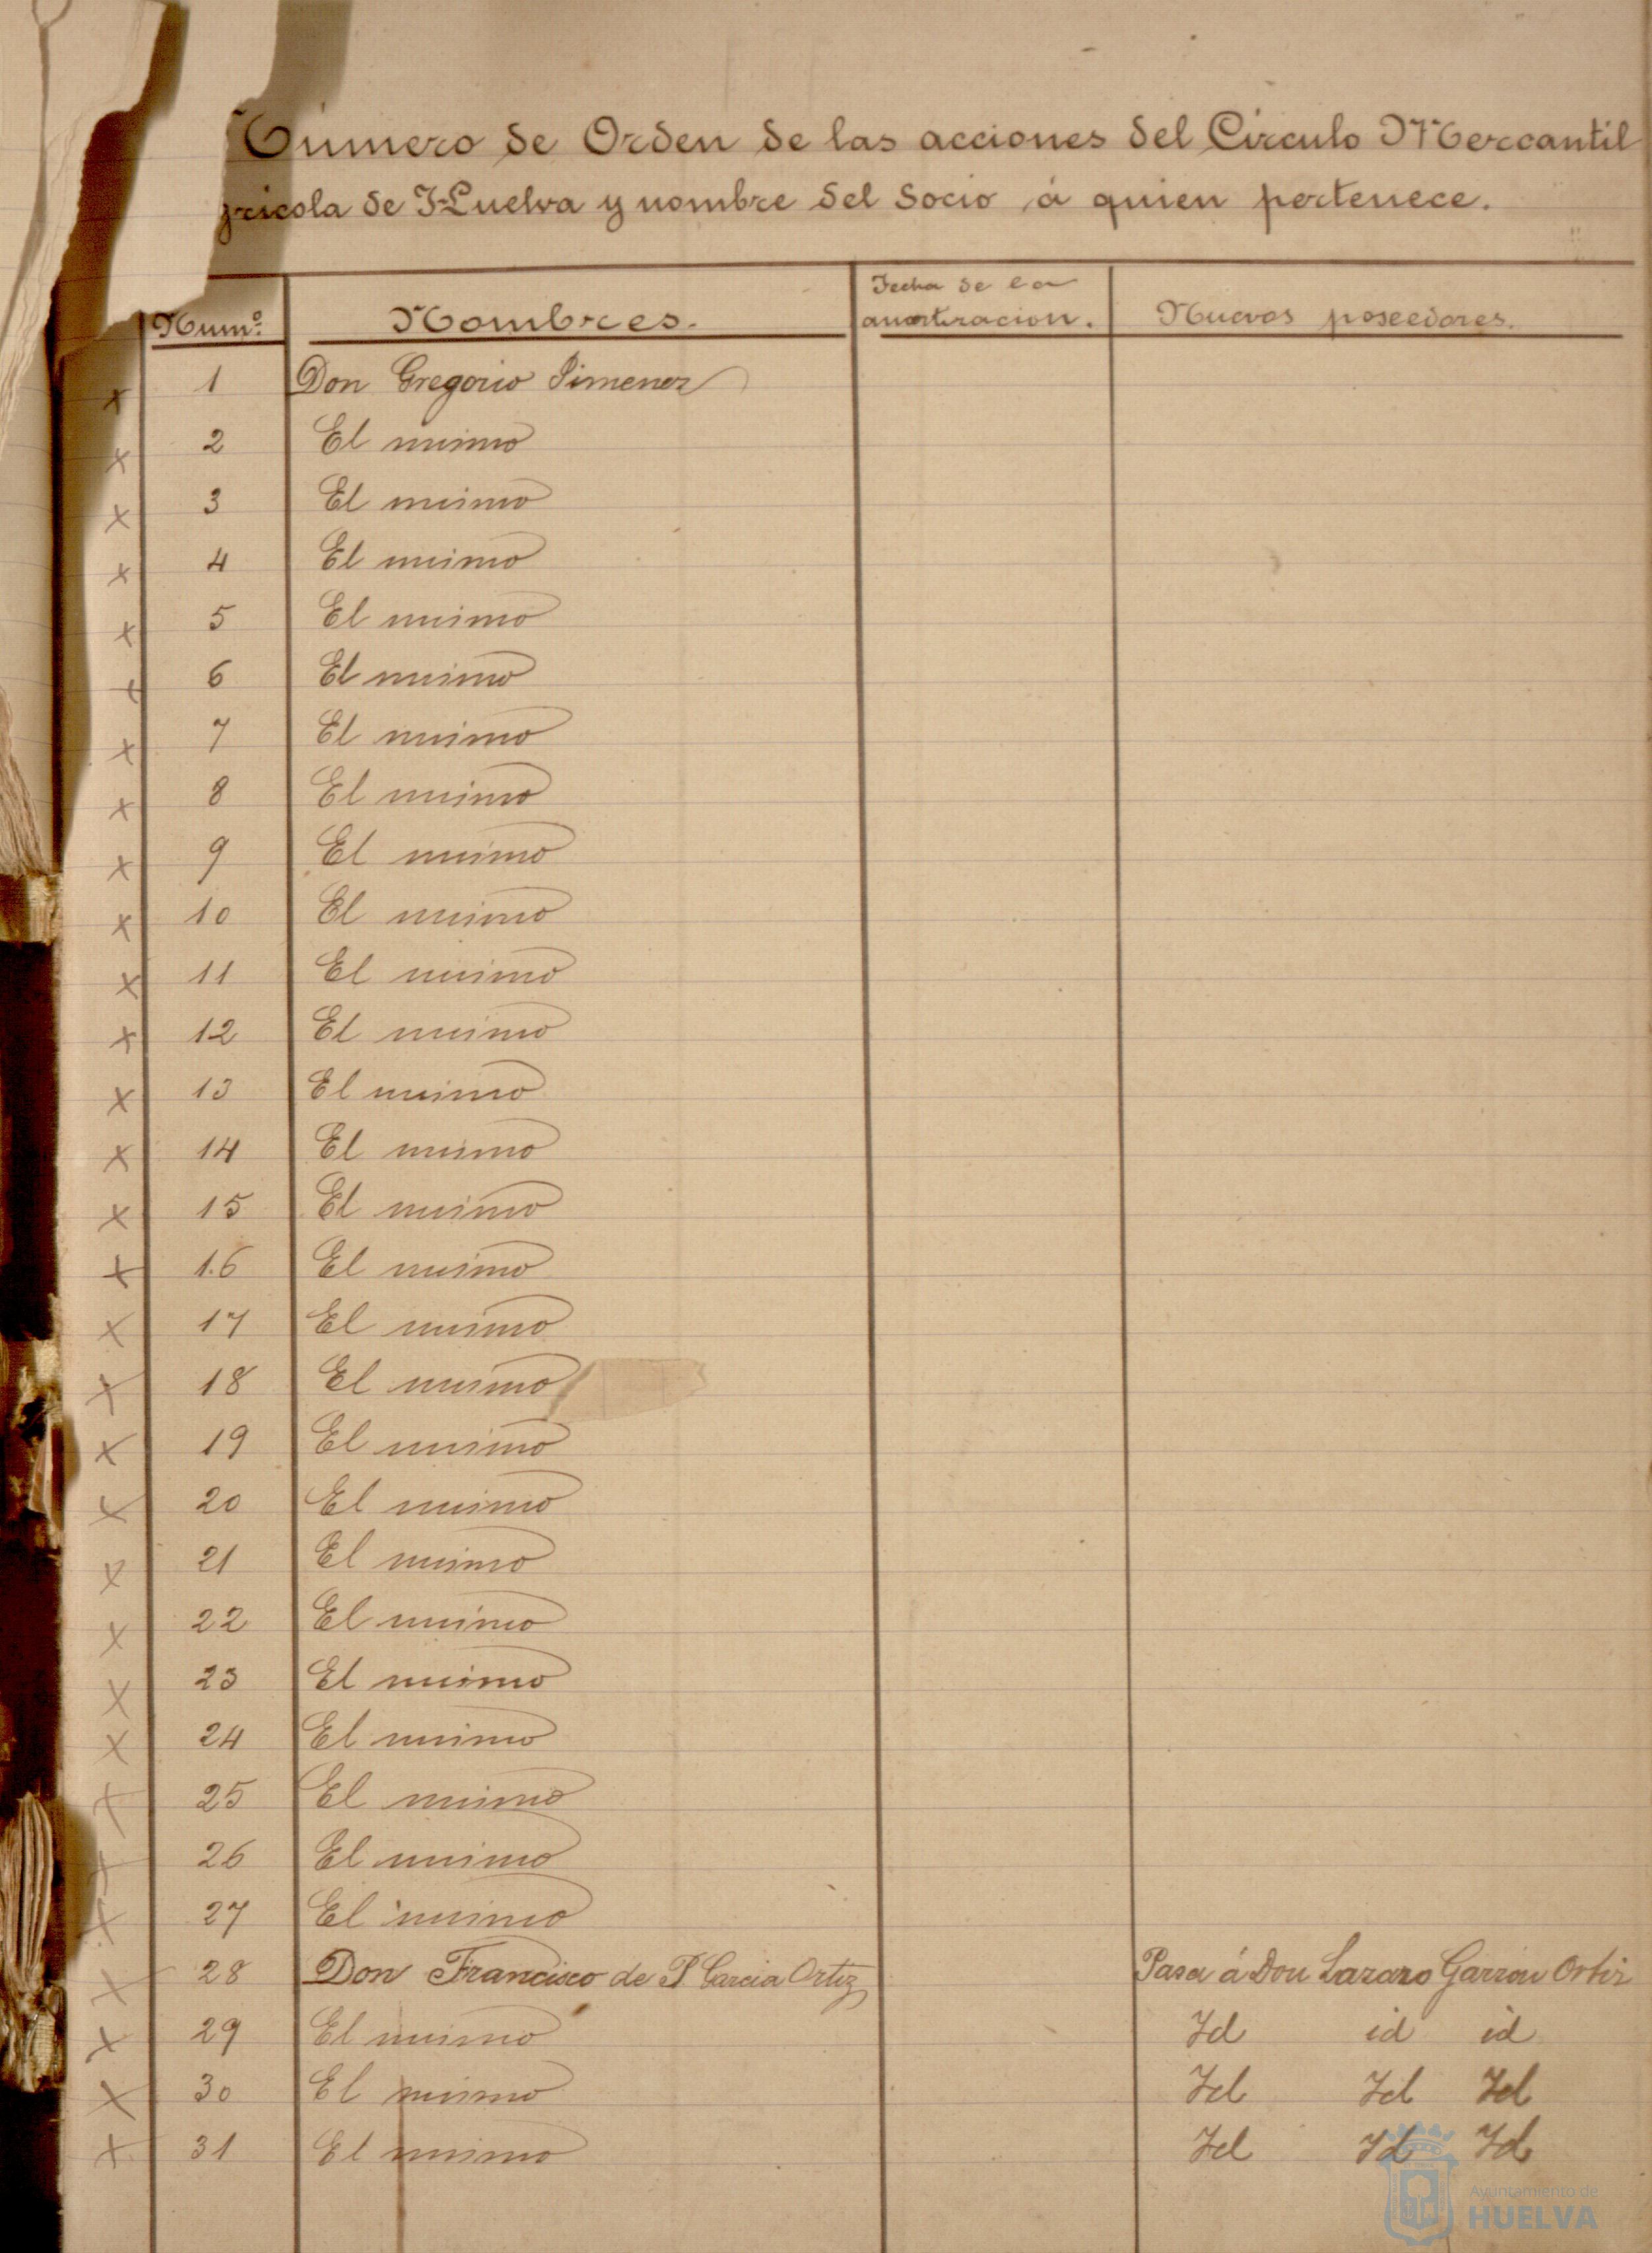 Número de Orden de las acciones del Circulo Mercantil
gricola de Huelva y nombre del Socio á quien pertenece.
Numº. Nombres. Fecha de la amortizacion. Nuevos poseedores.
x 1 Don Gregorio Jimenez
x 2 El mismo
x 3 El mismo
x 4 El mismo
x 5 El mismo
x 6 El mismo
x 7 El mismo
x 8 El mismo
x 9 El mismo
x 10 El mismo
x 11 El mismo
x 12 El mismo
x 13 El mismo
x 14 El mismo
x 15 El mismo
x 16 El mismo
x 17 El mismo
x 18 El mismo
x 19 El mismo
x 20 El mismo
x 21 El mismo
x 22 El mismo
x 23 El mismo
x 24 El mismo
x 25 El mismo
x 26 El mismo
x 27 El mismo
x 28 Don Francisco de P Garcia Ortiz Pasa á Don Lazaro Garzon Ortiz
x 29 El mismo Id id id
x 30 El mismo Id Id Id
x 31 El mismo Id Id Id
Ayuntamiento de
HUELVA